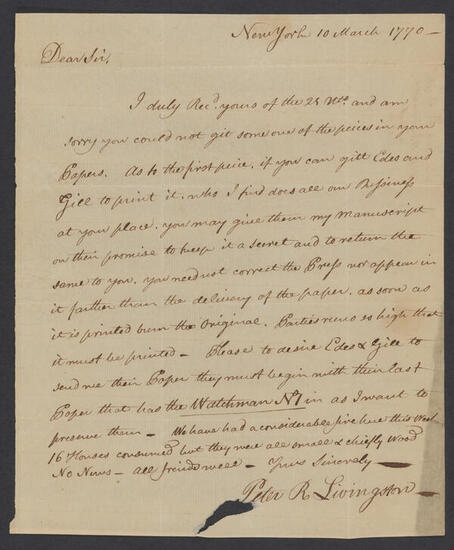 New York 10 March 1770 —
Dear Sir,
I duly Recd. yours of the 25 Ulto. and am
sorry you could not git some one of the peices in your
Papers. As to the first peice, if you can gitt Edes and
Gill to print it. who I find does all our Bussiness
at your place. you may give them my Manuscript
on their promise to keep it a secret and to return the
same to you. you need not correct the Press nor appear in
it farther than the delivery of the paper. as soon as
it is printed burn the Original. Parties runs so high that
it must be printed — Please to desire Edes & Gill to
send me their Paper they must begin with their last
Paper that has the Watchman No 1 in as I want to
preserve them — We have had a considerable fire here this Week
16 Houses consumed but they were all small & chiefly Wood
No News — all friends well — Yours Sincerely —
Peter R Livingston —